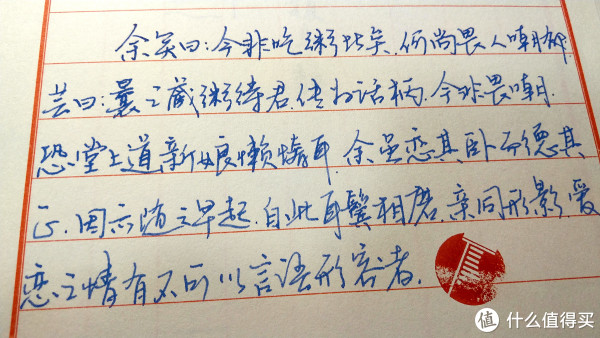 余笑曰:今非吃粥比矣,何尚畏人嘲耶
芸曰:曩之藏粥待君,传为话柄.今非畏嘲.
恐堂上道新娘懒惰耳.余虽恋其卧而德其
正.因亦随之早起.自此耳鬓相磨,亲同形影,爱
恋之情有不可以言语形容者.
值 什么值得买